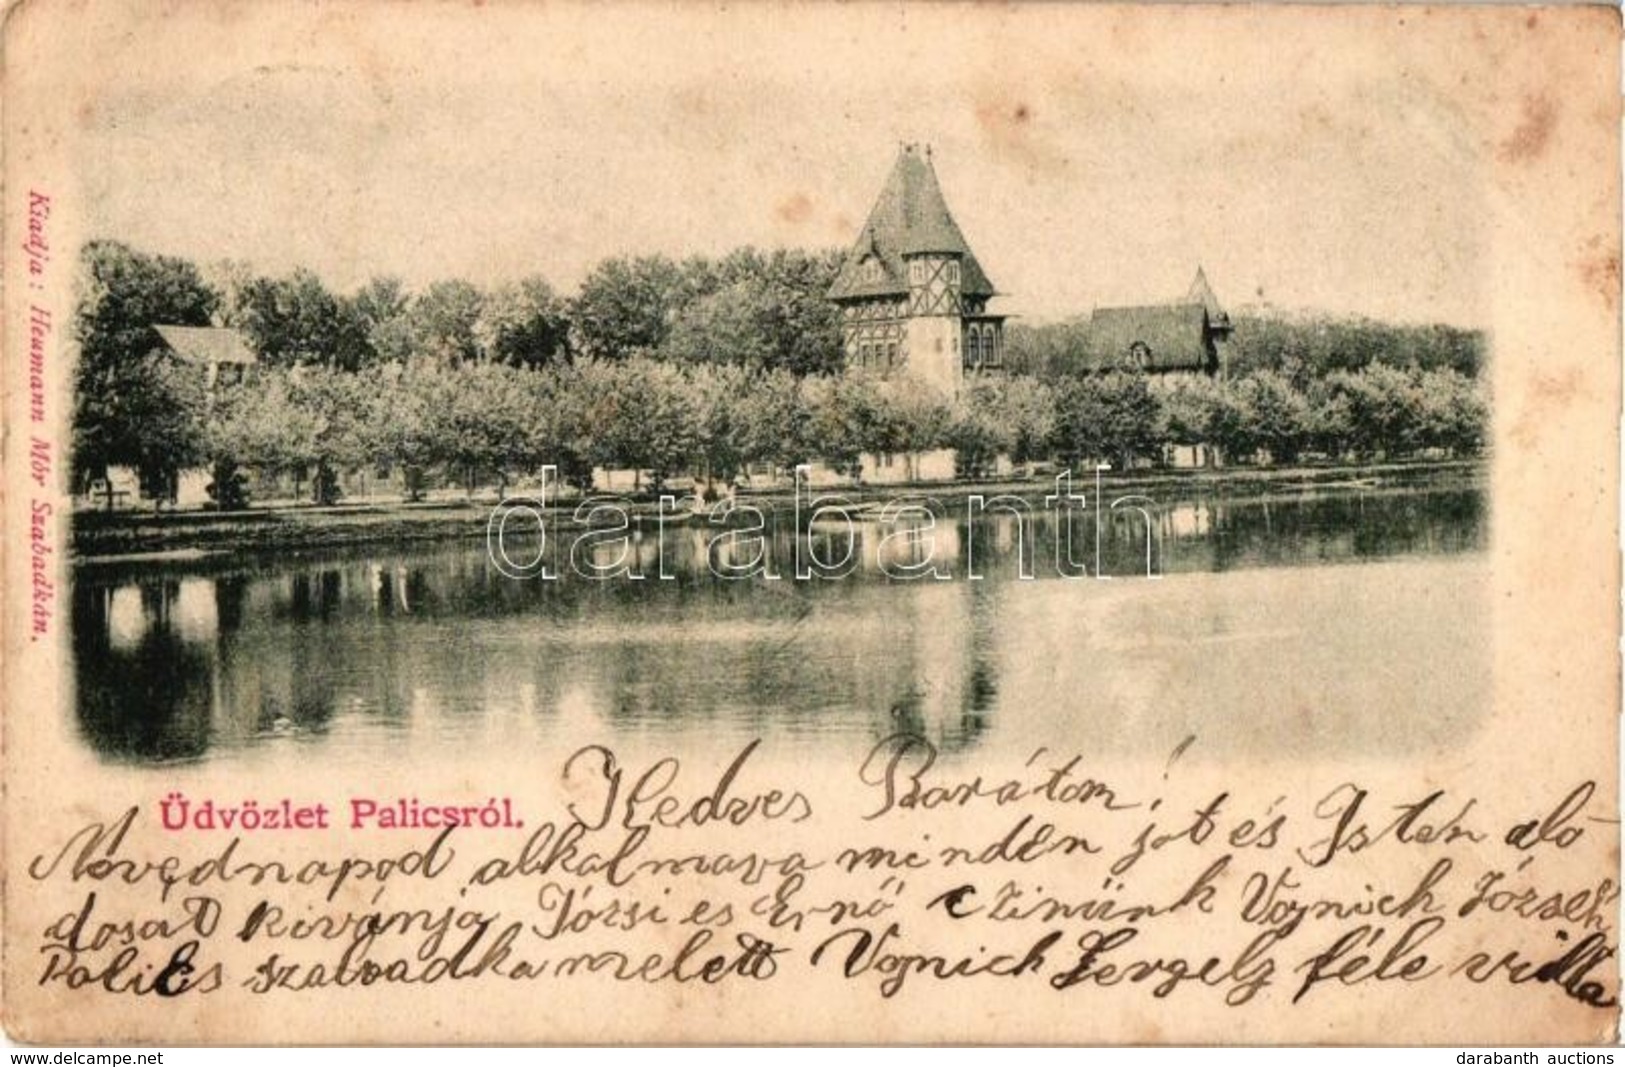 Kiadja: Heumann Mór Szabadkán.
darabanth
Üdvözlet Palicsról.
Kedves Barátom!
Névednapod alkalmava minden jot és Istén álo
dosát kivánja Józsi es Ernő Czimünk Vojnich József
Palics szabadka melett Vojnich Gergely féle villa
www.delcampe.net
darabanth auctions